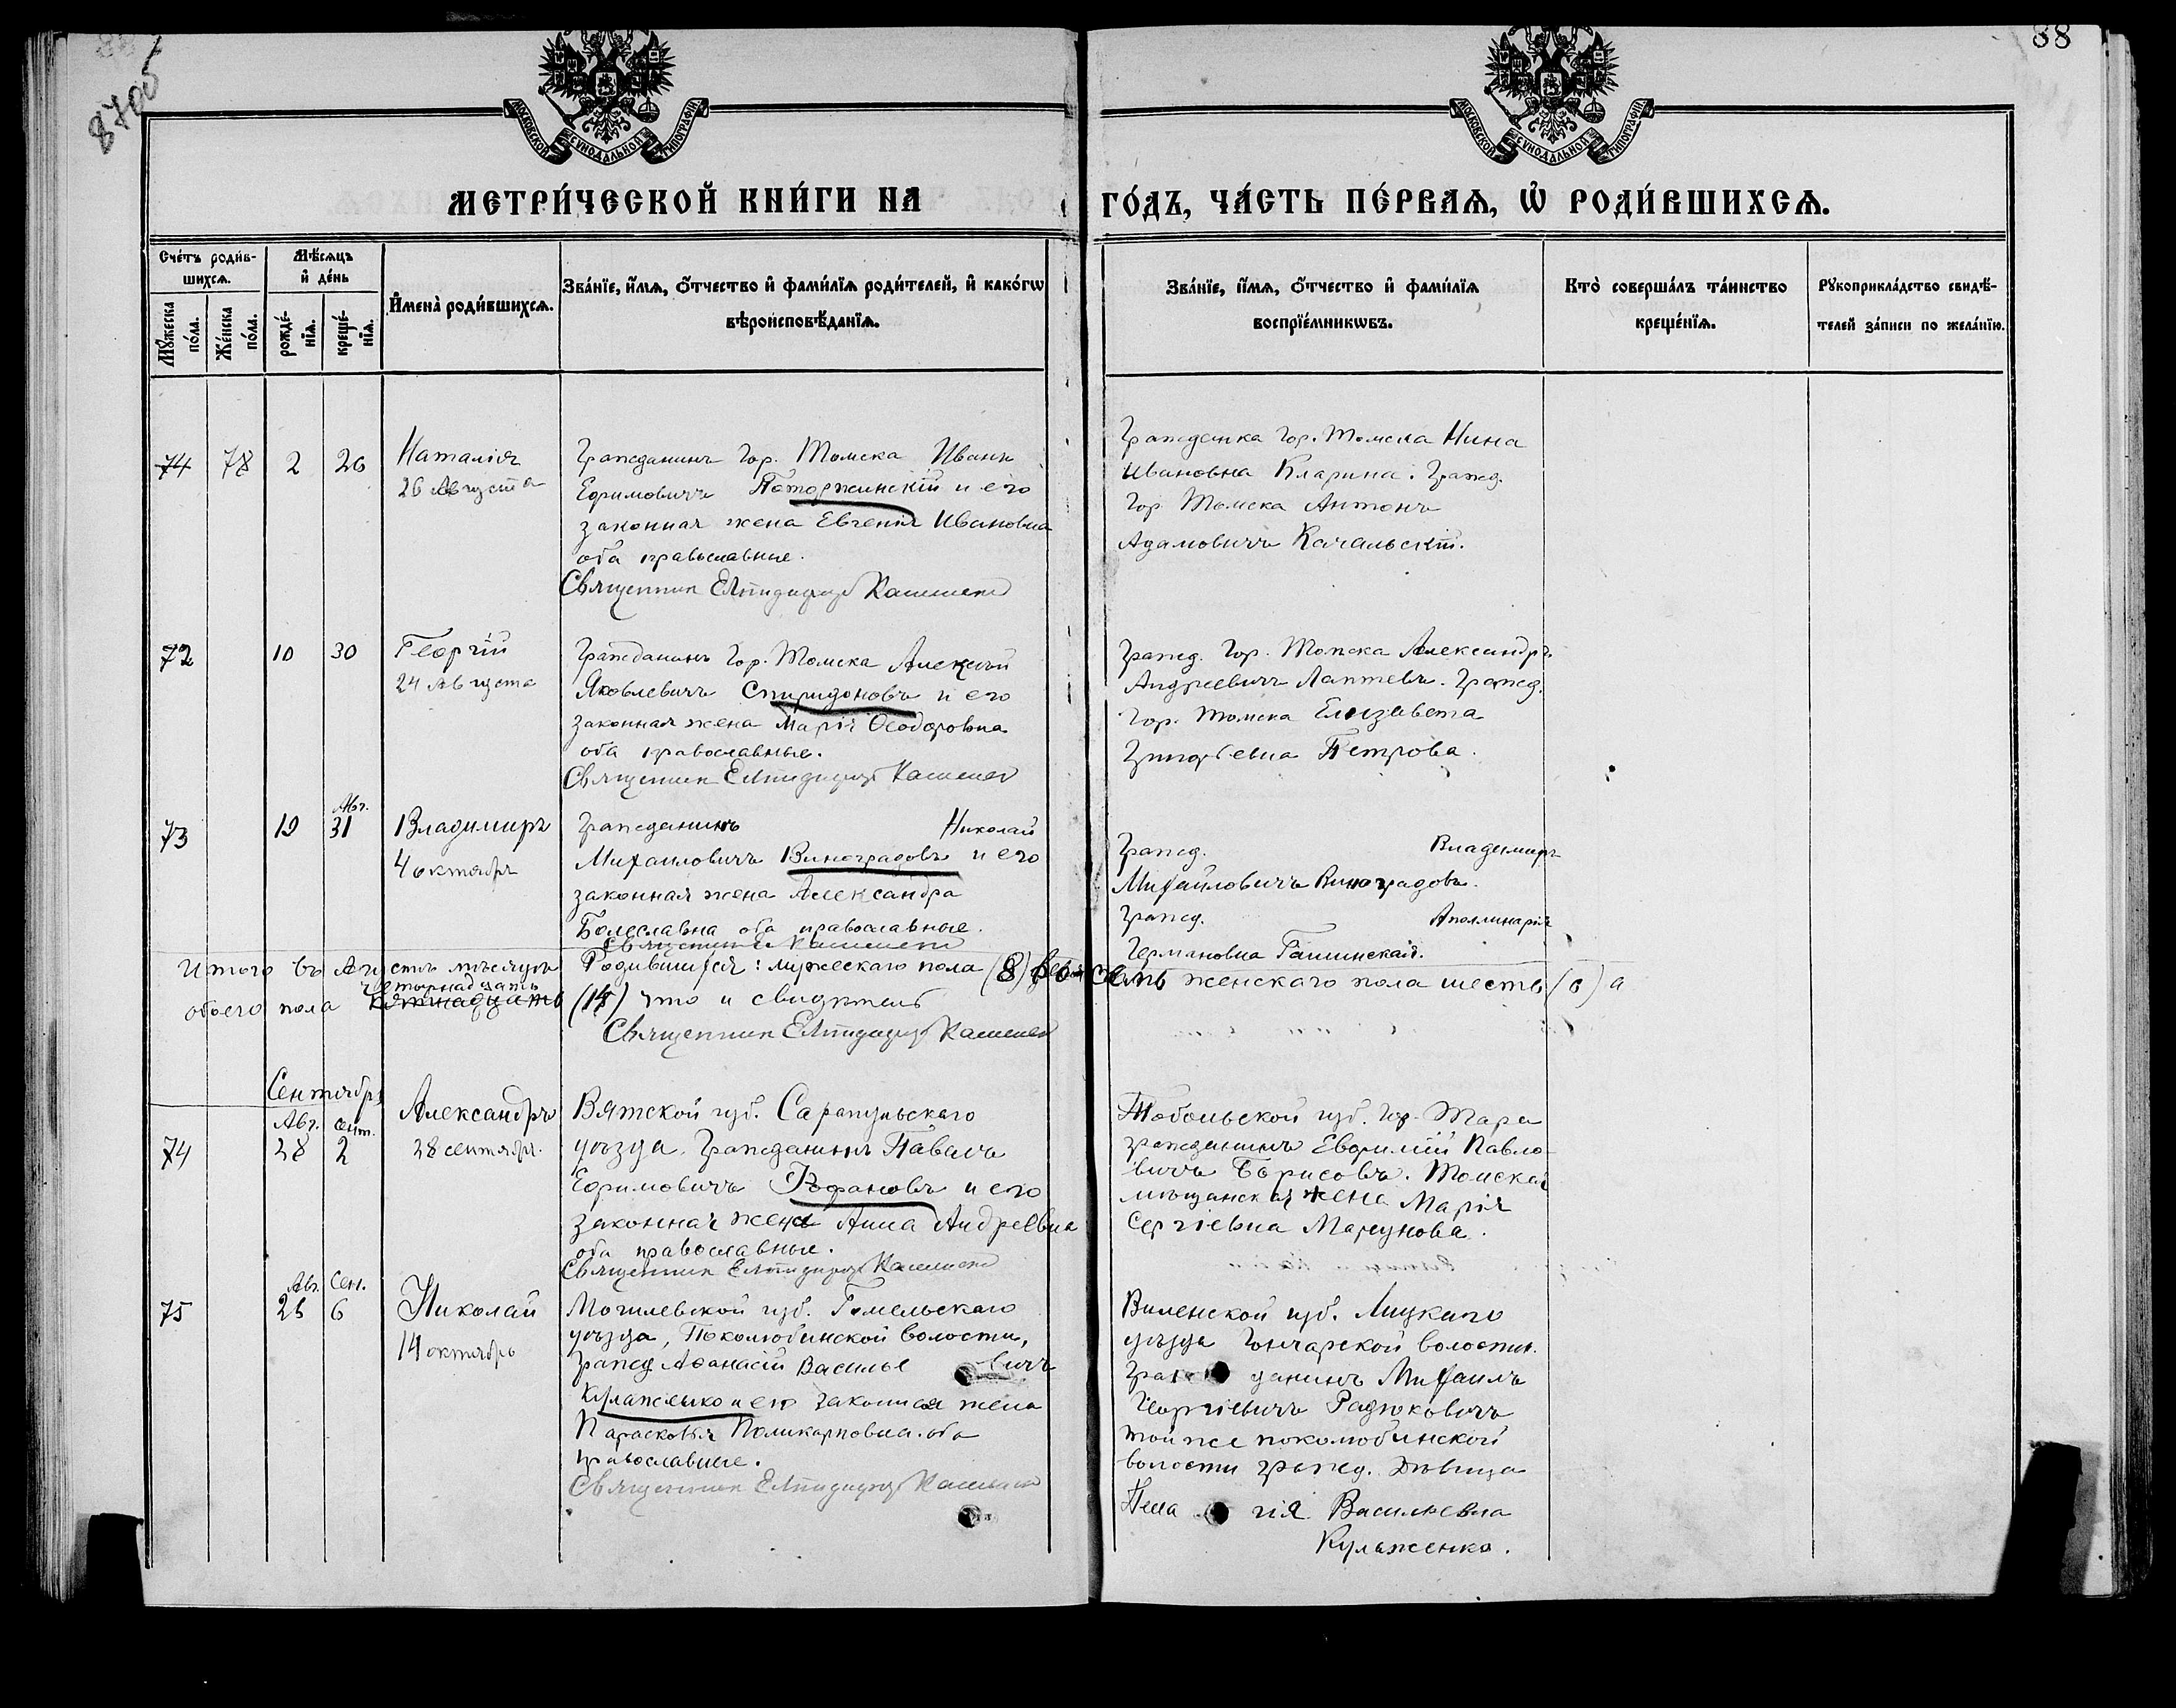 87об
88
МОСКОВСКОЙ СУНОДАЛЬНОЙ ТИПОГРАФІИ
МОСКОВСКОЙ СУНОДАЛЬНОЙ ТИПОГРАФІИ
МЕТРИ́ЧЕСКОЙ КНИ́ГИ НА
ГО́ДЪ, ЧА́СТЬ ПЕ́РВАѦ, Ѡ҆ РОДИ́ВШИХСѦ.
Сче́тъ роди́в-
шихсѧ.
Мꙋжеска по́ла.
Же́нска по́ла.
Мѣ́сѧцъ
и҆ де́нь
рожде́-
нїѧ.
креще́-
нїѧ.
И҆мена̀ роди́вшихсѧ.
Зва́нїе, и҆́мѧ, ѻ҆́тчество и҆ фами́лїѧ роди́телей, и҆ како́гѡ
вѣроисповѣ́данїѧ.
Зва́нїе, и҆́мѧ, ѻ҆́тчество и҆ фами́лїѧ
воспрїе́мникѡвъ.
Кто̀ соверша́лъ та́инство
креще́нїѧ.
Рꙋкоприкла́дство свидѣ́-
телей за́писи по жела́нїю.
74 78 2 26
Наталія
26 Августа
Гражданинъ Гор. Томска Иванъ
Ефимовичъ Поторжинскій и его
законная жена Евгенія Ивановна
оба православные.
Священник Елпидифор Кашменск
Гражданка Гор. Томска Нина
Ивановна Кларина. Гражд.
Гор. Томска Антонъ
Адамовичъ Качальскій.
72 10 30
Георгій
24 Августа
Гражданинъ Гор. Томска Алексій
Яковлевичъ Спиридоновъ и его
законная жена Марія Ѳеодоровна
оба православные.
Священник Елпидифор Кашменск
Гражд. Гор. Томска Александръ
Андреевичъ Лаптевъ. Гражд.
Гор. Томска Елизавета
Григорьевна Петрова.
73 10 Авг. 31
Владимиръ
4 октября
Гражданинъ Николай
Михаиловичъ Виноградовъ и его
законная жена Александра
Болеславна оба православные.
Священник Кашменск
Гражд. Владимиръ
Михайловичъ Виноградовъ.
Гражд. Аполлинарія
Германовна Гашинская.
Итого въ Августѣ мѣсяцѣ Родившихся: мужескаго пола (8) восемь женскаго пола шесть (6) а
четырнадцать
обоего пола (14) что и свидѣтель
Священник Елпидифор Кашменск
Сентябрь
74 Авг. 28 сент. 2
Александръ
28 сентября.
Вятской губ. Сарапульскаго
уѣзда. Гражданинъ Павелъ
Ефимовичъ и его
законная жена Анна Андреевна
оба православные.
Священник Елпидифор Кашменск
Тобольской губ. гор. Тара
гражданинъ Евфимій Павло-
вичъ Борисовъ. Томская
мѣщанская жена Марія
Сергіевна
75 Авг. Сен. 6
Николай
14 октября
Могилевской губ. Гомельскаго
уѣзда, Поколюбинской волости,
Гражд Аѳанасій Василье вичъ
Кулаженко и его законная жена
Парасковья Поликарповна. оба
православные.
Священник Елпидифор Кашменск
Виленской губ. Лидскаго
уѣзда Гончарской волости.
Граж данинъ Михаилъ
Георгіевичъ Радюковичъ
той же поколюбинской
волости гражд. дѣвица
Пела гія Васильевна
Кулаженко.